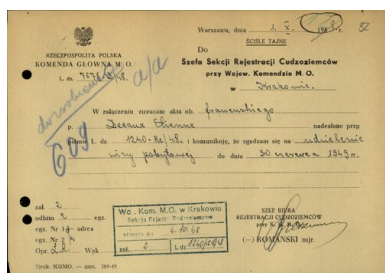 Warszawa, dnia 1. X. 1948 r.
52
ŚCIŚLE TAJNE
RZECZPOSPOLITA POLSKA
KOMENDA GŁÓWNA M. O.
L. dz. 7678 48.
a/a
609
Do
Szefa Sekcji Rejestracji Cudzoziemców
przy Wojew. Komendzie M. O.
w Krakowie.
W załączeniu zwracam akta ob. francuskiego
p. Decaux Etienne nadesłane przy
L. dz. 1240-Rc/48. i komunikuję, że zgadzam się na udzielenie
wizy pobytowej do dnia 30 czerwca 1949 r.
zał. 2
odbito 2 egz.
egz. Nr 1 adres
egz. Nr 2
Opr. Wpk
Wo. Kom. M.O. w Krakowie
Sekcja Rejestr. Cudzoziemców
4. 10. 48
zał. 2 L. dz. 1240/Rc/48
SZEF BIURA
REJESTRACJI CUDZOZIEMCÓW
(—) ROMAŃSKI mjr.
Druk. KGMO. — zam.